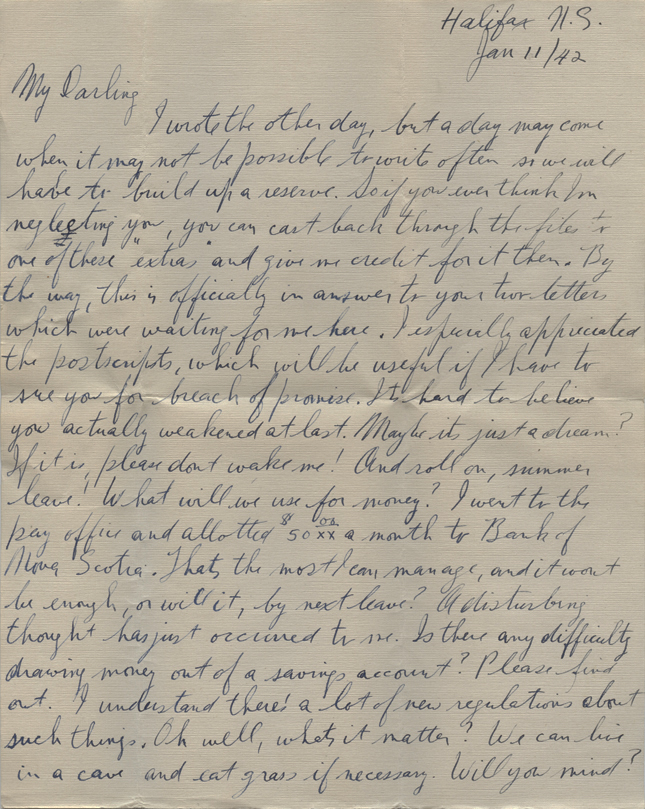 Halifax N.S.
Jan 11/42
My Darling
I wrote the other day, but a day may come
when it may not be possible to write often so we will
have to build up a reserve. So if you ever think Im
neglecting you, you can cast back through the files to
one of these "extras" and give me credit for it then. By
the way, this is officially in answer to your two letters
which were waiting for me here. I especially appreciated
the postscripts, which will be useful if I have to
sue you for breach of promise. Its hard to believe
you actually weakened at last. Maybe its just a dream?
If it is, please dont wake me! And roll on, summer
leave! What will we use for money? I went to the
pay office and allotted $50 00/xx a month to Bank of
Nova Scotia. Thats the most I can manage, and it wont
be enough, or will it, by next leave? A disturbing
thought has just occurred to me. Is there any difficulty
drawing money out of a savings account? Please find
out. I understand there's a lot of new regulations about
such things. Oh well, whats it matter? We can live
in a cave and eat grass if necessary. Will you mind?